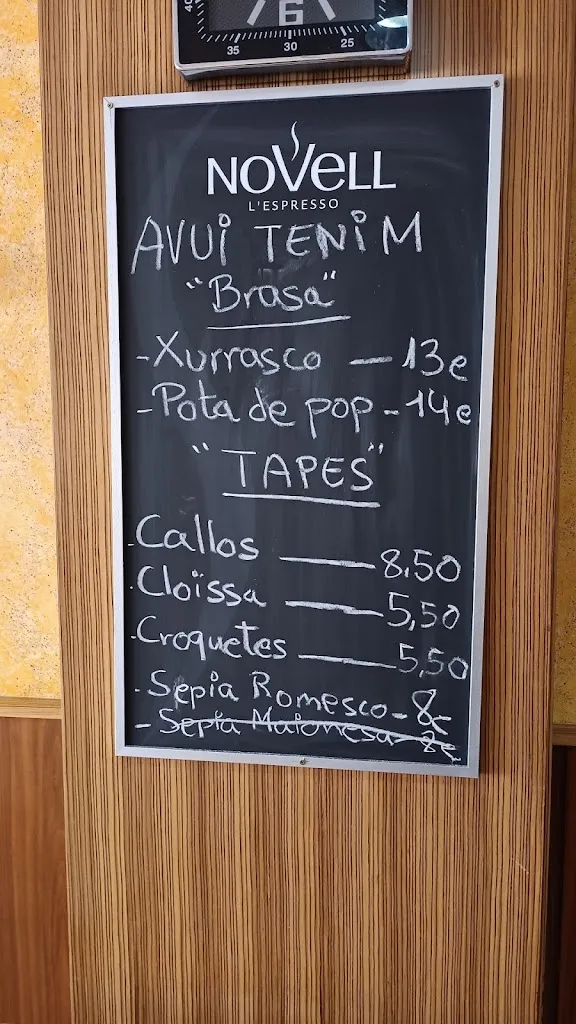 40
6
35 30 25
NOVELL
L'ESPRESSO
AVUI TENIM
"Brasa"
-Xurrasco — 13e
-Pota de pop - 14e
"TAPES"
-Callos — 8,50
-Cloïssa — 5,50
-Croquetes — 5,50
-Sepia Romesco - 8e
-Sepia Maionesa - 8e